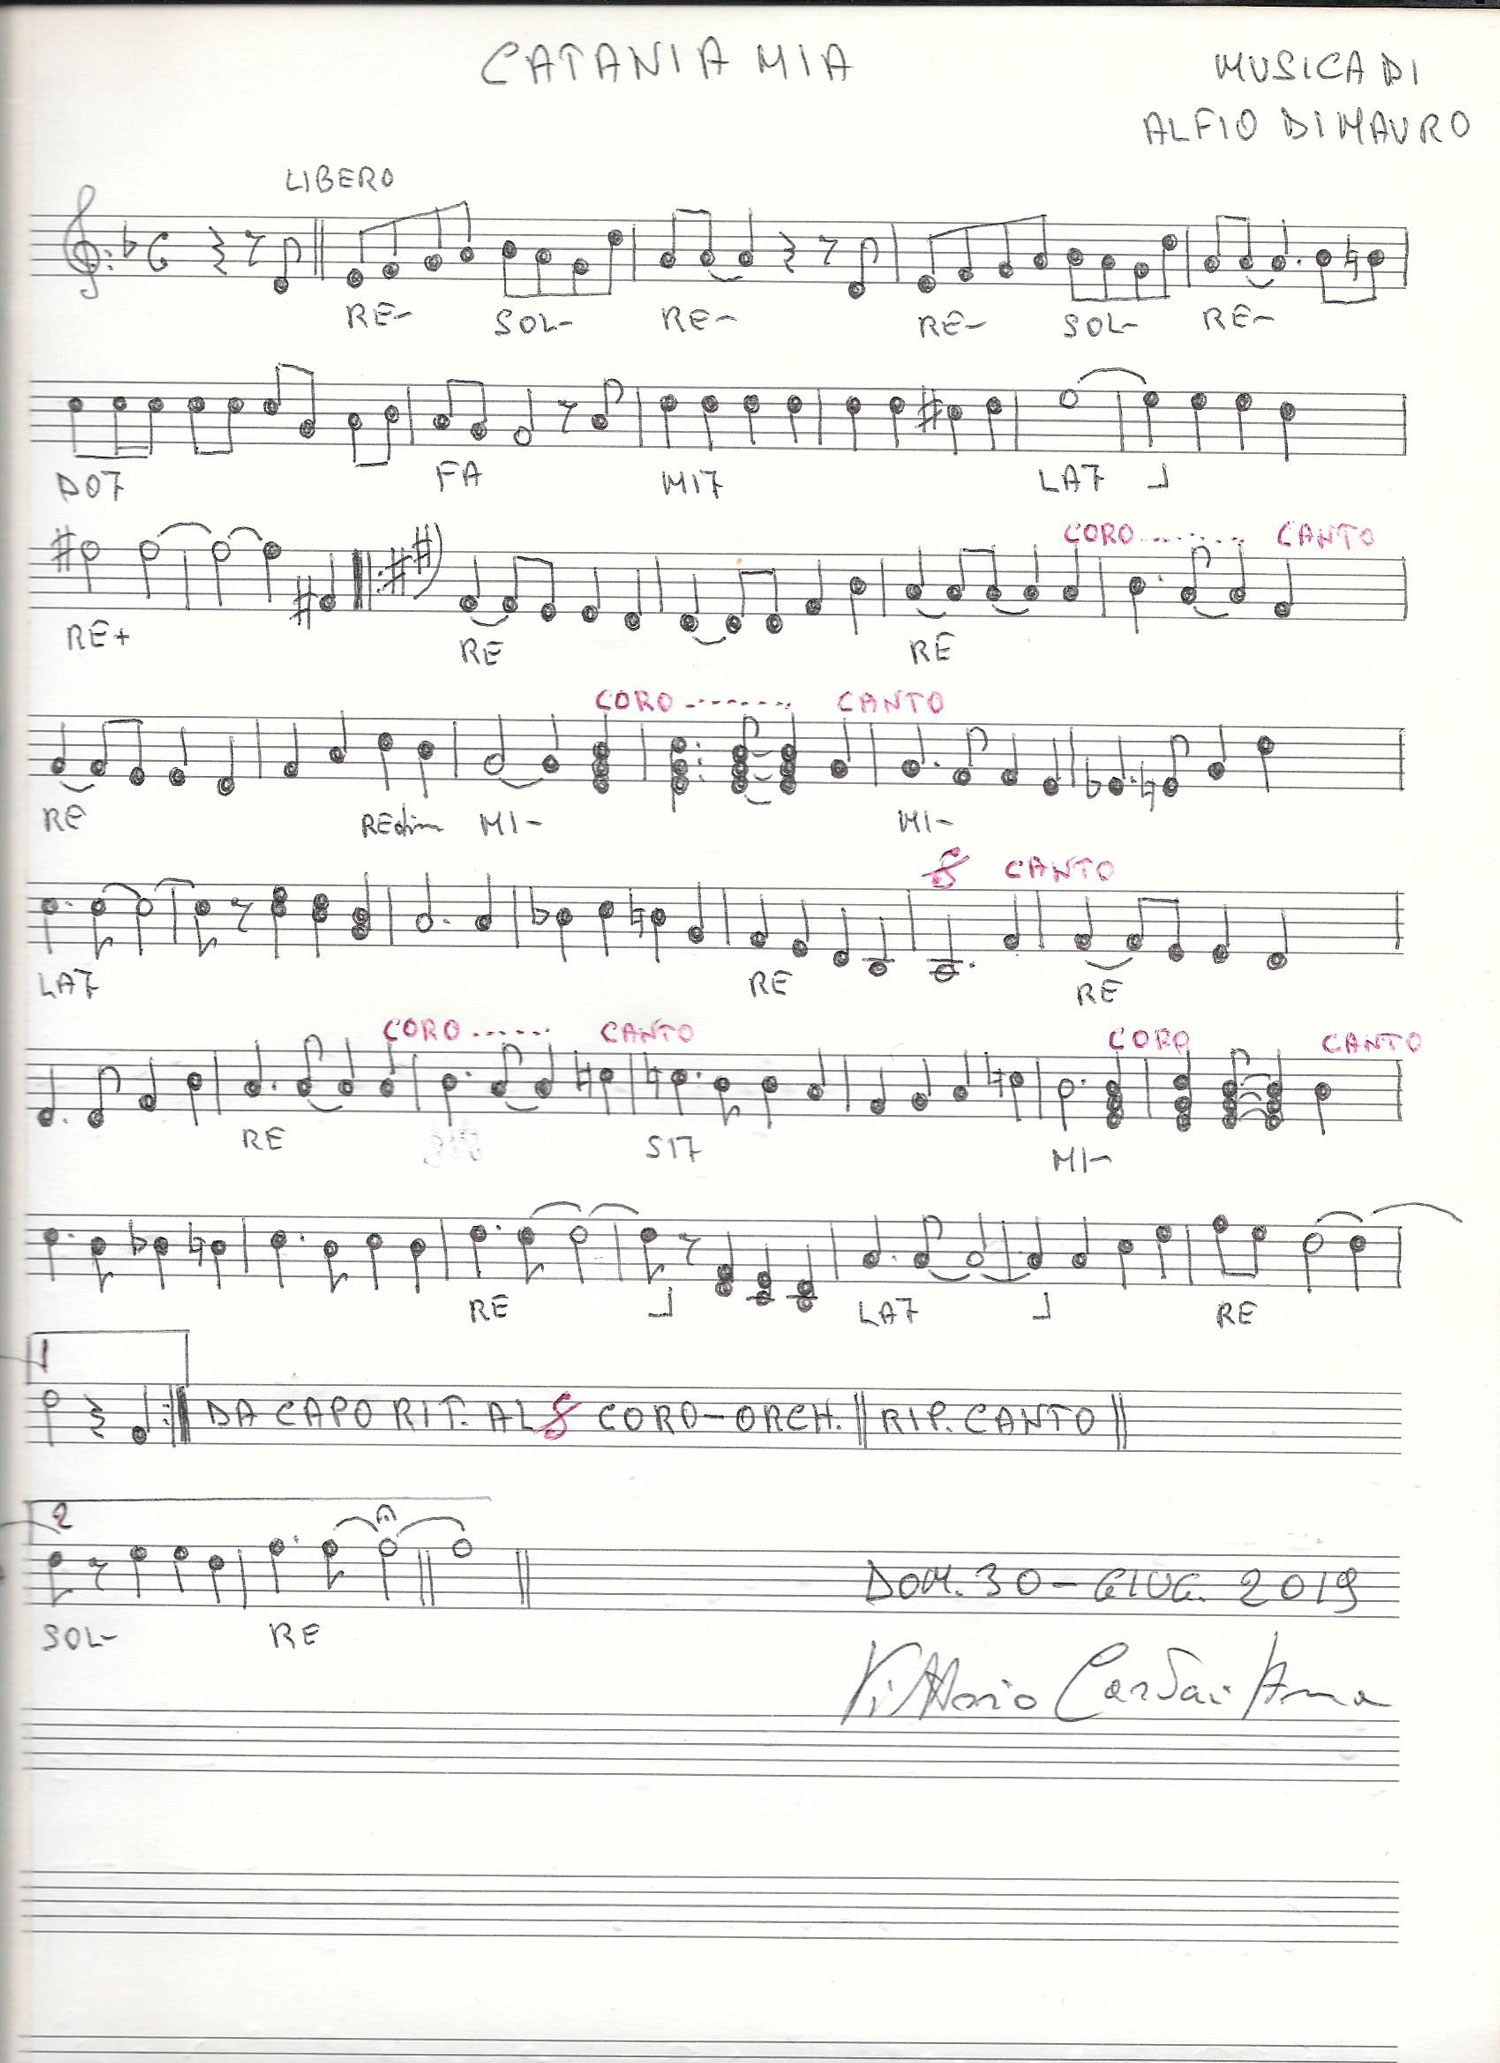 CATANIA MIA
MUSICA DI
ALFIO DI MAURO
LIBERO
RE- SOL- RE- RE- SOL- RE-
DO7 FA MI7 LA7
CORO CANTO
RE+ RE RE
CORO CANTO
RE REdim MI- MI-
CANTO
LA7 RE RE
CORO CANTO CORO CANTO
RE SI7 MI-
RE LA7 RE
1
DA CAPO RIT. AL CORO-ORCH. RIP. CANTO
2
DOM. 30-GIUG. 2019
SOL- RE
Vittorio